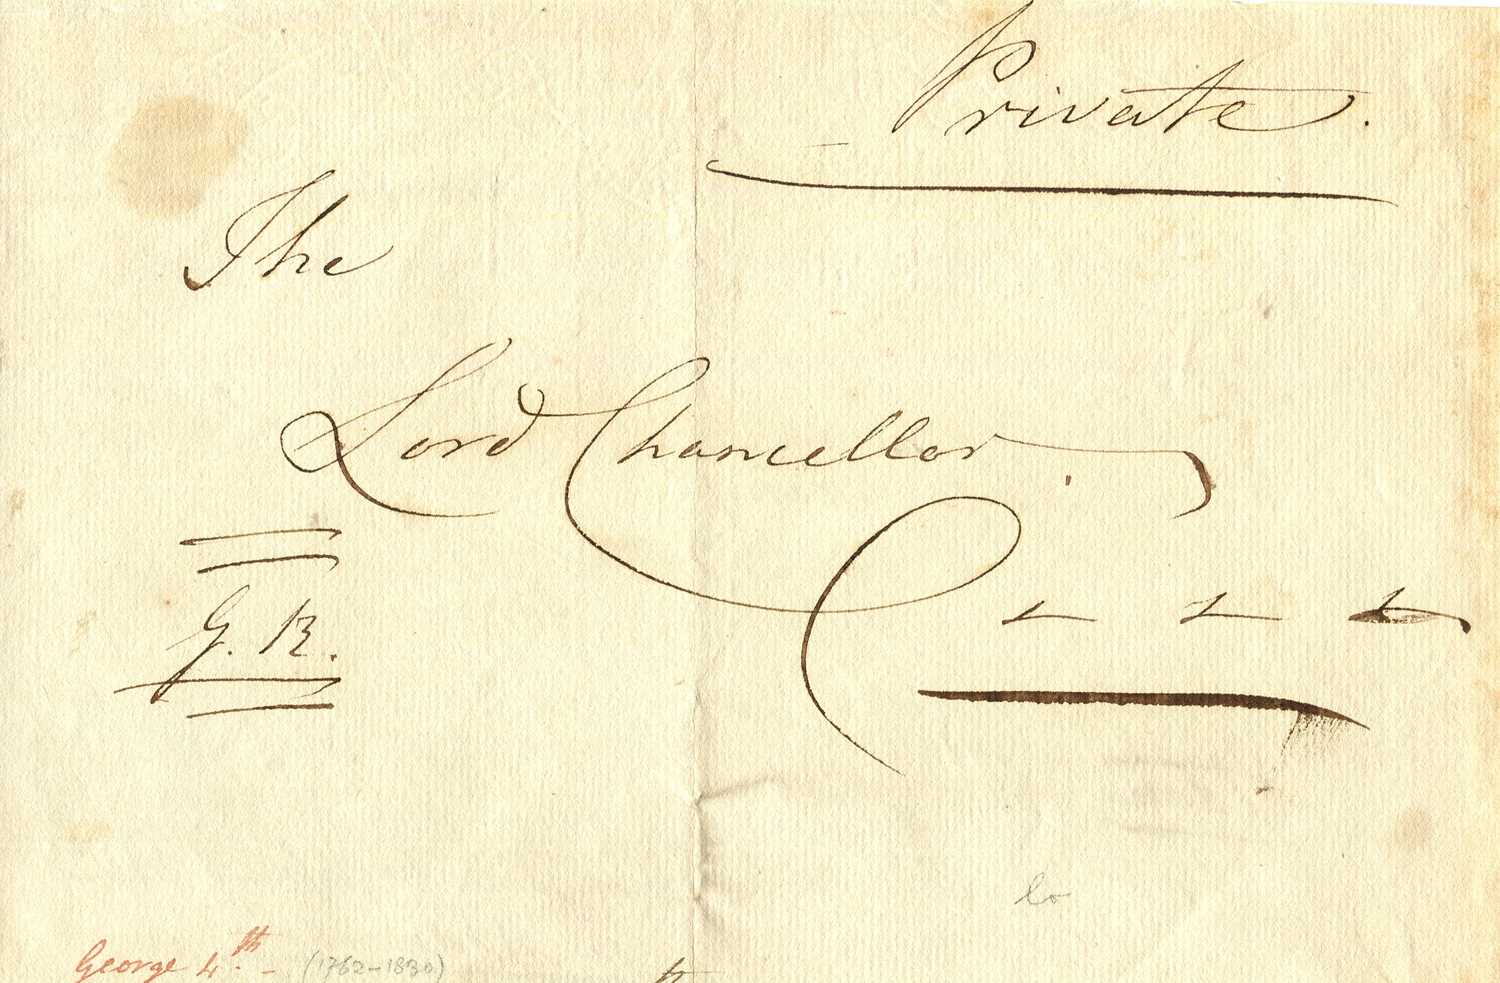 Private.
The
Lord Chancellor
G. R.
George 4.th - (1762-1830)